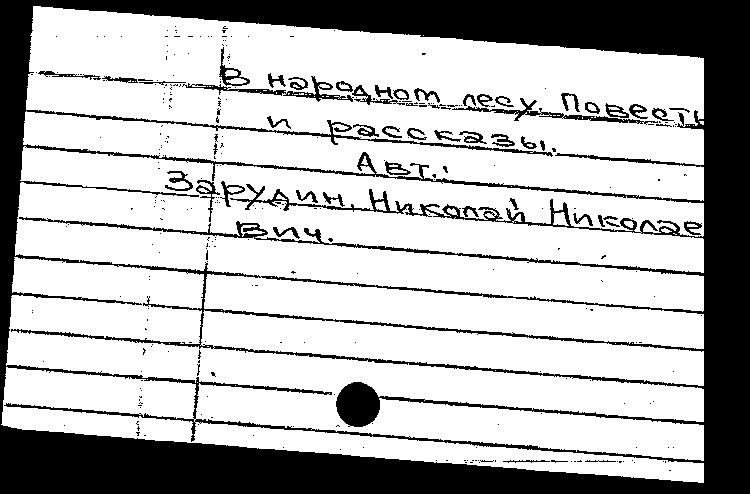 В народном лесу. Повесть
и рассказы.
Авт.:
Зарудин, Николай Николае
вич.